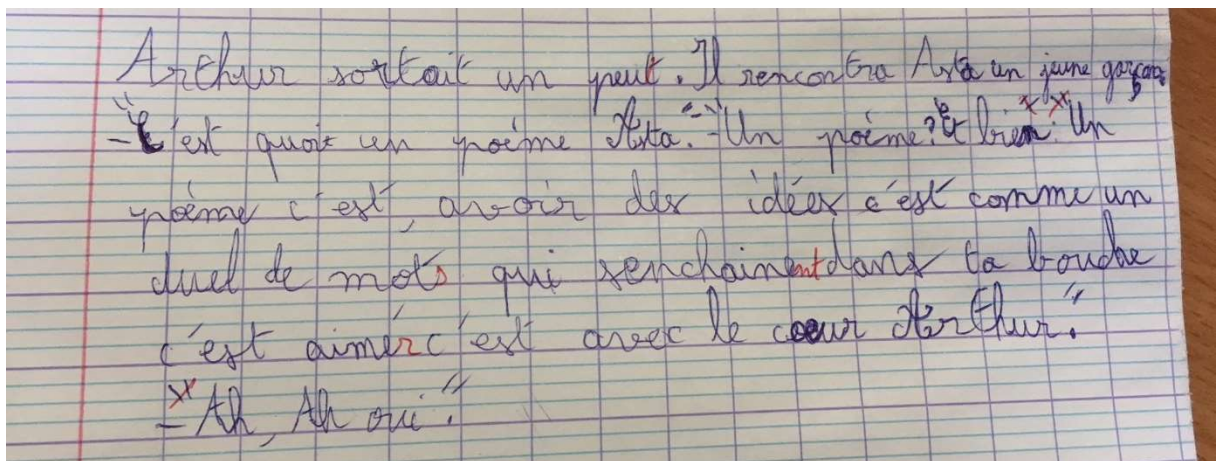 Arthur sortait un peut. Il rencontra Asta un jeune garçon
-"C'est quoi un poème Asta."-"Un poème? et bien: Un
poème c'est avoir des idées c'est comme un
duel de mots qui senchainent dans ta bouche
c'est aimer c'est avec le coeur Arthur."
- Ah, Ah oui."